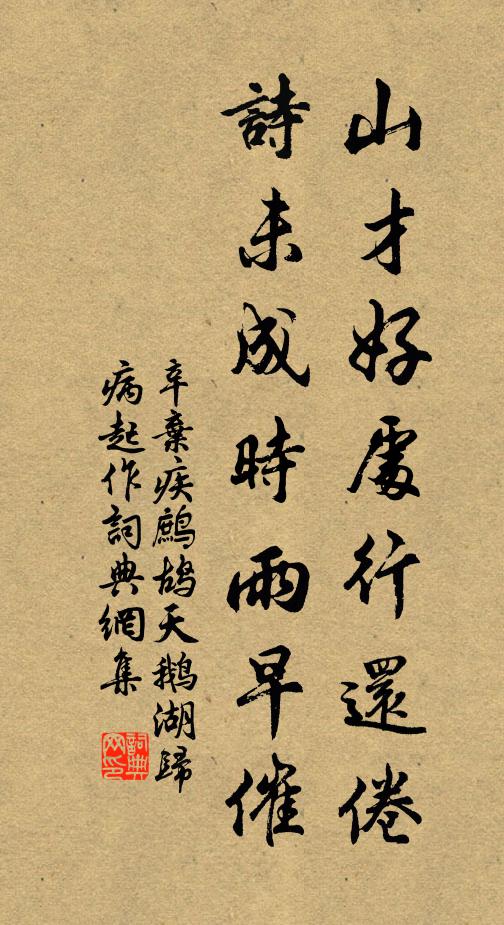 山才好處行還倦
詩未成時雨早催
辛棄疾鷓鴣天鵝湖歸
病起作詞典網集
詞典
网印